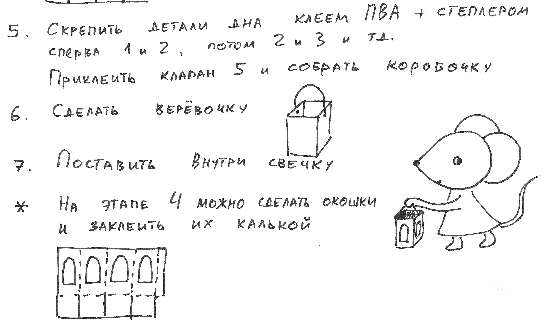 5. Скрепить детали дна клеем ПВА + степлером
сперва 1 и 2, потом 2 и 3 и тд.
Приклеить клапан 5 и собрать коробочку
6. Сделать верёвочку
7. Поставить внутри свечку
* На этапе 4 можно сделать окошки
и заклеить их калькой